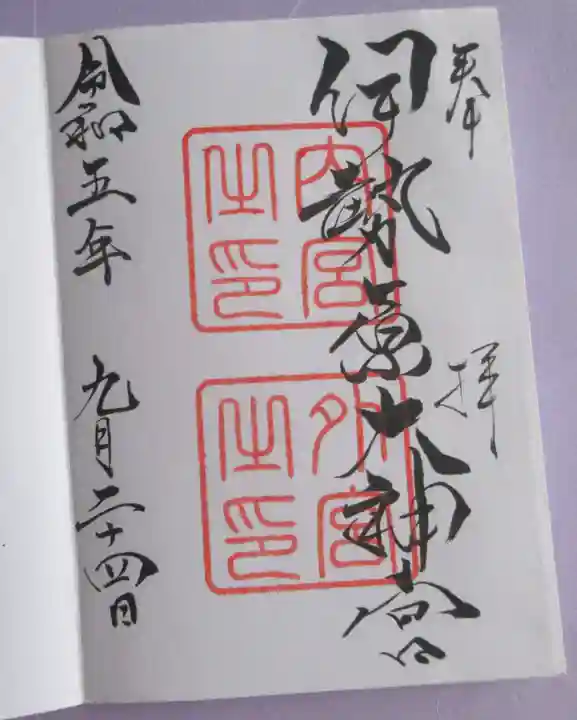 奉拝
伊勢原大神宮
内宮
之印
外宮
之印
令和五年 九月二十四日